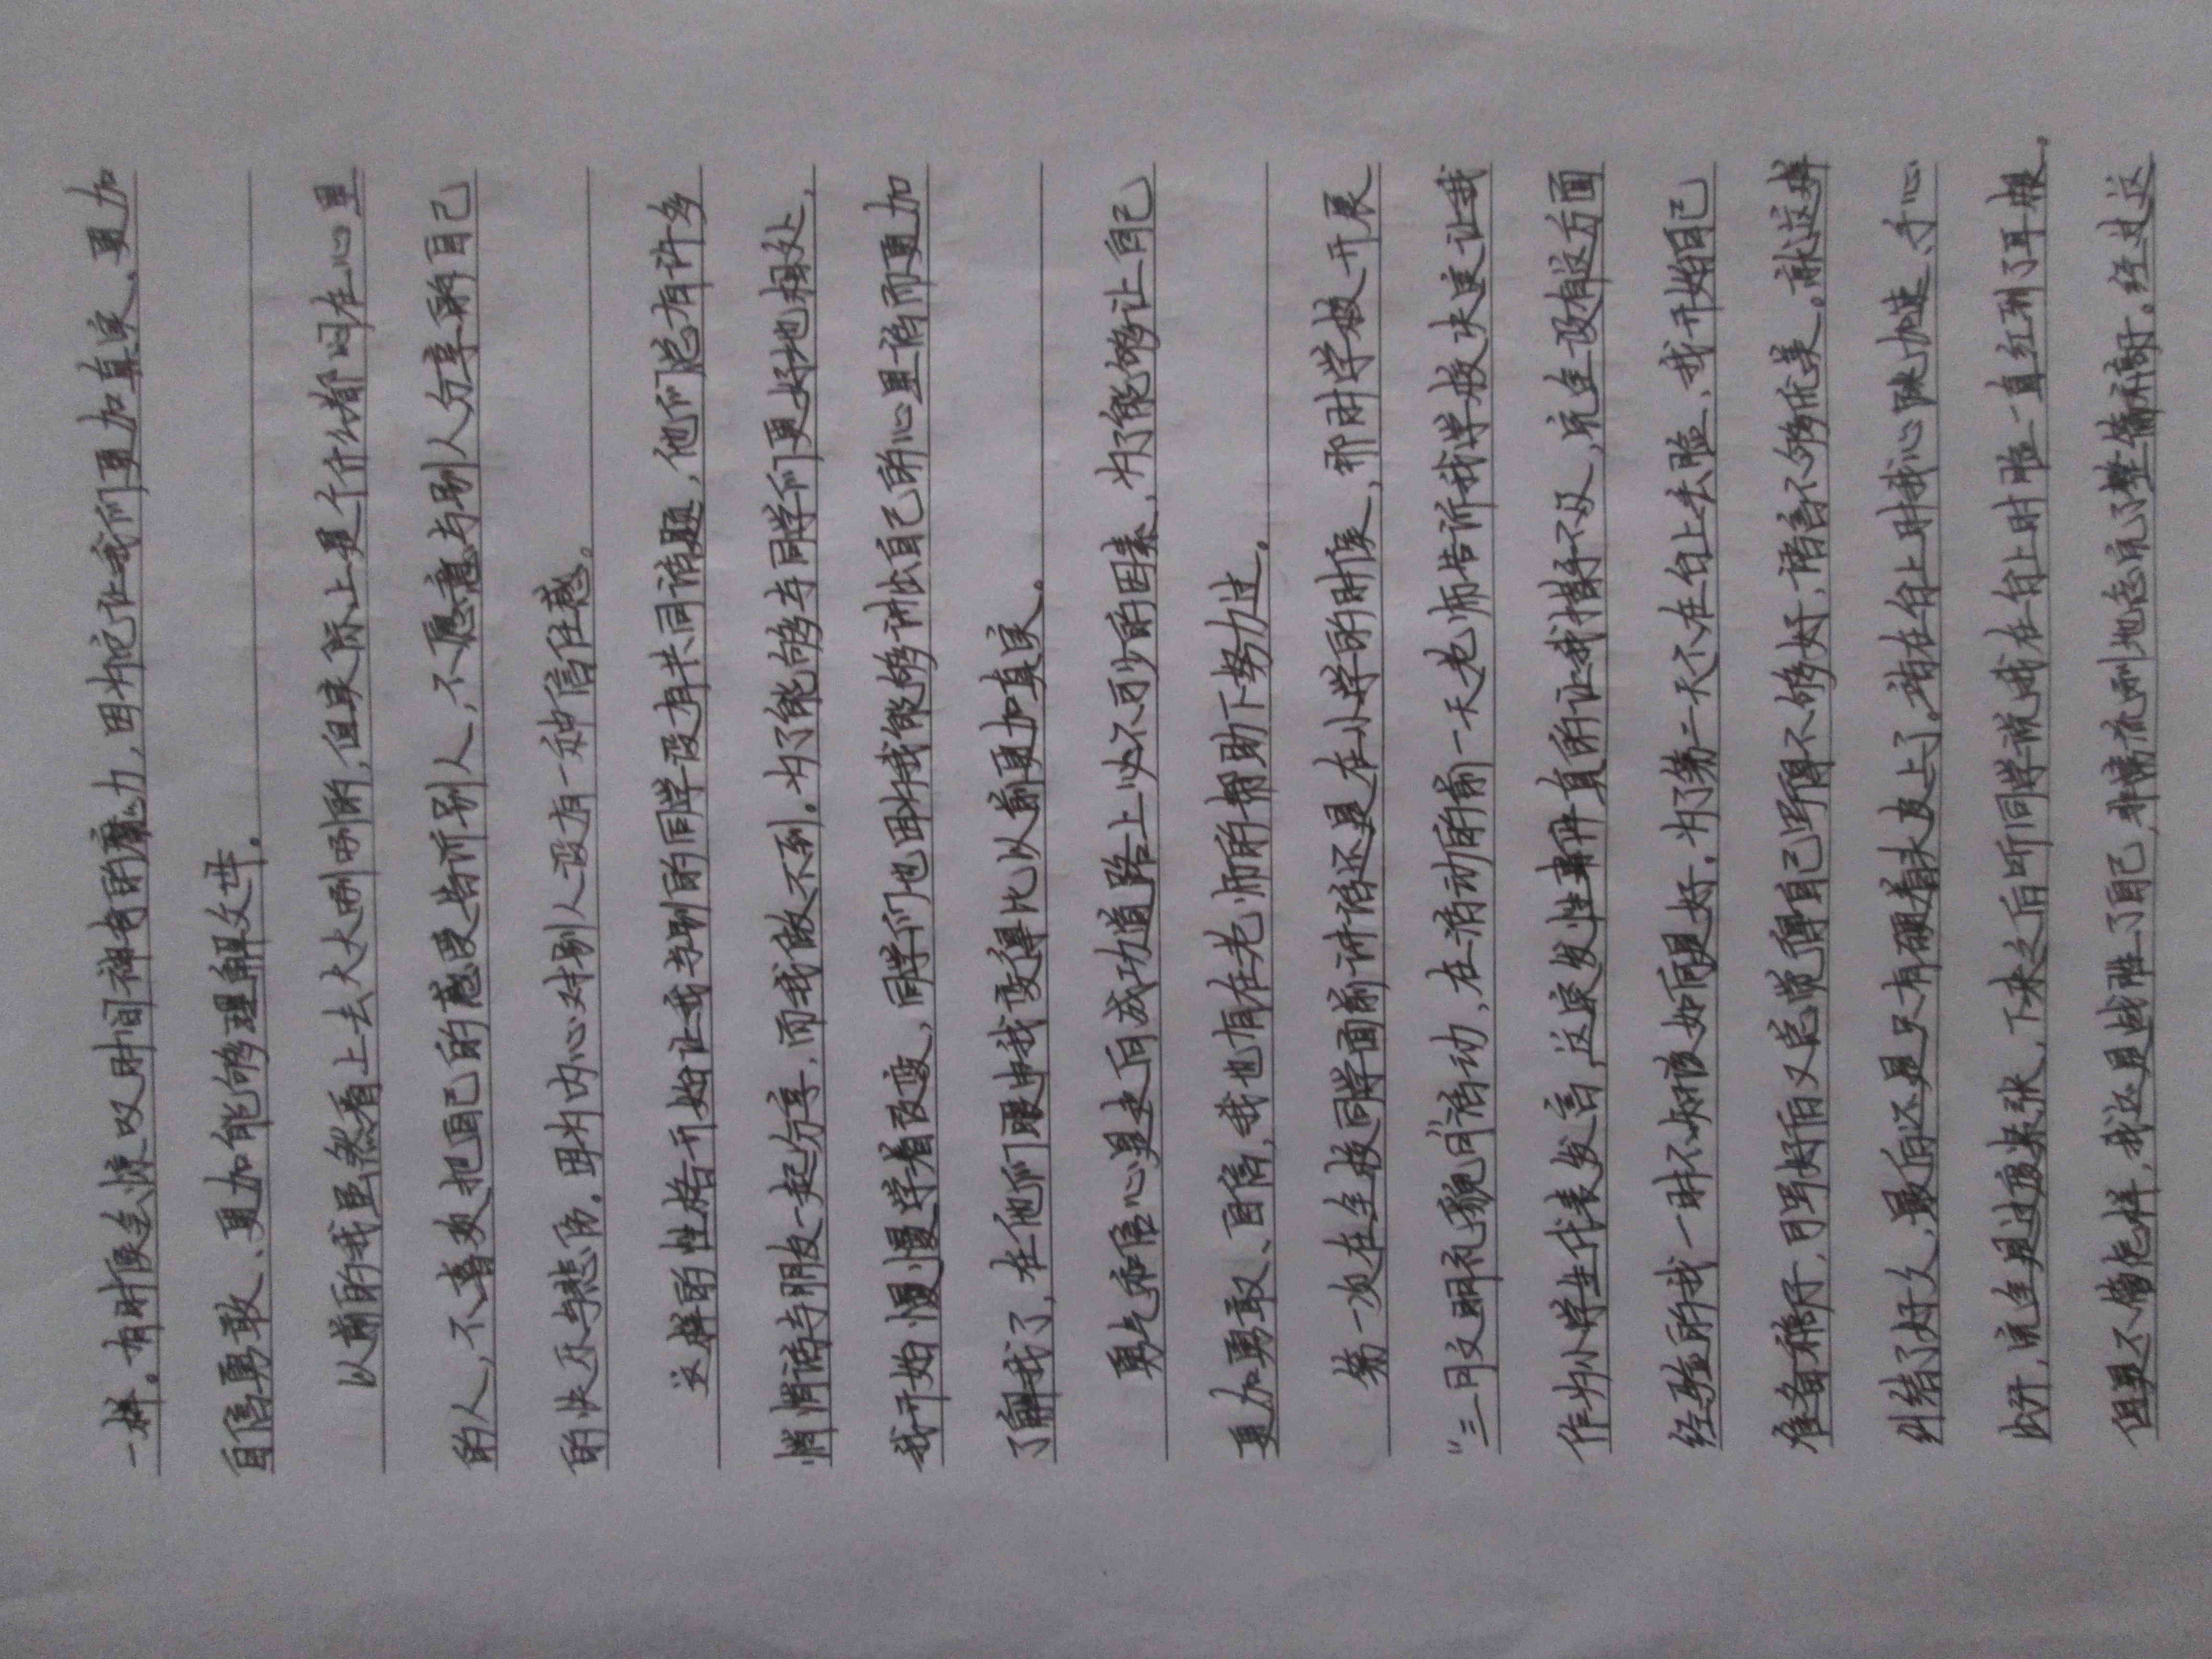 一样。有时候会惊叹时间神奇的魔力，因为它让我们更加真实、更加
自信勇敢、更加能够理解父母。
以前的我虽然看上去大大咧咧的，但实际上是个什么都闷在心里
的人，不喜欢把自己的感受告诉别人，不愿意与别人分享的自己
的快乐与悲伤。因为内心对别人没有一种信任感。
这样的性格开始让我与别的同学没有共同话题，他们总有许多
悄悄话与朋友一起分享，而我做不到。为了能够与同学们更好地相处，
我开始慢慢学着改变，同学们也因为我能够讲出自己的心里话而更加
了解我了，在他们眼中我变得比以前更加真实。
勇气和信心是走向成功道路上必不可少的因素，为了能够让自己
更加勇敢、自信，我也有在老师的帮助下努力过。
第一次在全校同学面前讲话还是在小学的时候，那时学校开展
“三月文明礼貌月”活动，在活动的前一天老师告诉我学校决定让我
作为小学生代表发言，这突发性事件真的让我措手不及，完全没有这方面
经验的我一时不知该如何是好。为了第二天不在台上丢脸，我开始自己
准备稿子，可写好后又总觉得自己写得不够好，语言不够优美。就这样
纠结了好久，最后还是只有硬着头皮上了。站在台上时我心跳加速、手心
出汗，完全是过度紧张，下来之后听同学说我在台上时脸一直红到了耳根。
但是不管怎样，我还是战胜了自己，非常流利地念完了整篇稿子。经过这